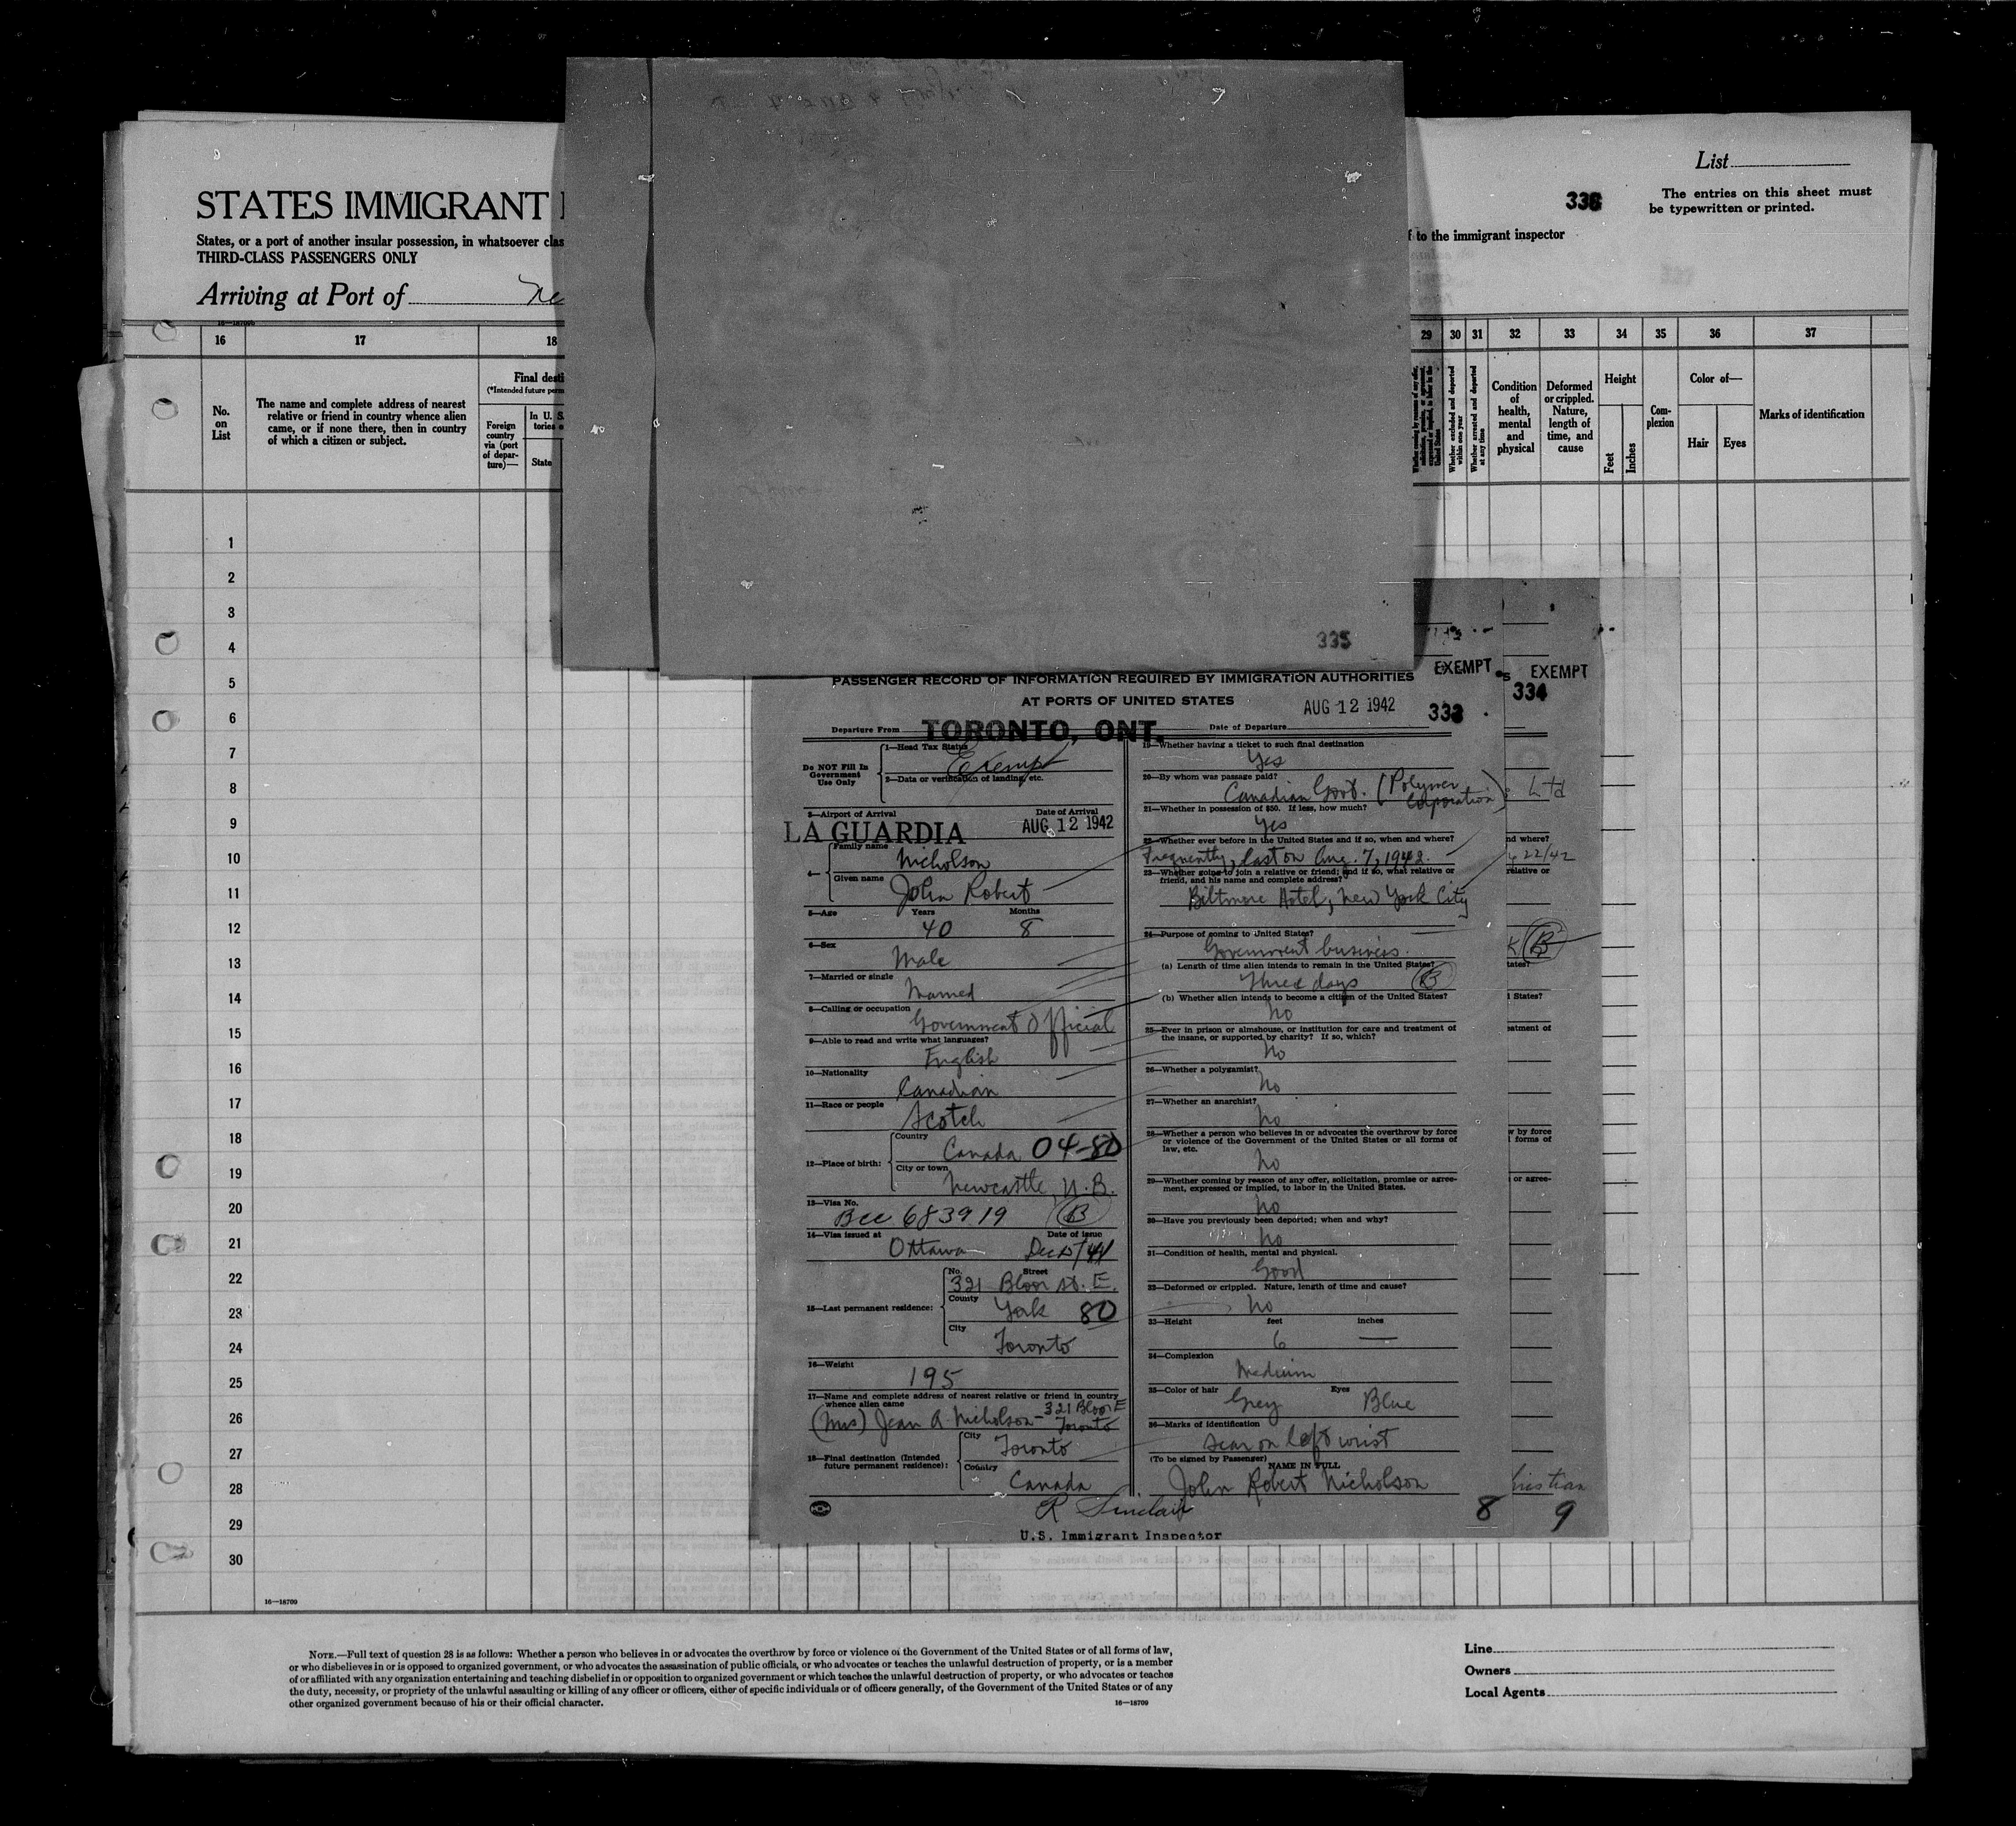 List
336
The entries on this sheet must
be typewritten or printed.
STATES IMMIGRANT
States, or a port of another insular possession, in whatsoever clas
to the immigrant inspector
THIRD-CLASS PASSENGERS ONLY
Arriving at Port of
16 17 18 29 30 31 32 33 34 35 36 37
No. on List
The name and complete address of nearest
relative or friend in country whence alien
came, or if none there, then in country
of which a citizen or subject.
Final desti
(*Intended future perm
Foreign country via (port of departure)—
In U. S.
tories
State
Whether excluded and deported within one year
Whether arrested and deported at any time
Condition of health, mental and physical
Deformed or crippled. Nature, length of time, and cause
Height
Feet
Inches
Com-plexion
Color of—
Hair
Eyes
Marks of identification
1
2
3
4
5
6
7
8
9
10
11
12
13
14
15
16
17
18
19
20
21
22
23
24
25
26
27
28
29
30
16—18709
335
EXEMPT
EXEMPT
334
333
PASSENGER RECORD OF INFORMATION REQUIRED BY IMMIGRATION AUTHORITIES
AT PORTS OF UNITED STATES
Departure From TORONTO, ONT. Date of Departure AUG 12 1942
Do NOT Fill In Government Use Only
1—Head Tax Status
Exempt
2—Data or verification of landing, etc.
3—Airport of Arrival Date of Arrival
LA GUARDIA AUG 12 1942
4—
Family name
Nicholson
Given name
John Robert
5—Age Years Months
40 8
6—Sex
Male
7—Married or single
Married
8—Calling or occupation
Government Official
9—Able to read and write what languages?
English
10—Nationality
Canadian
11—Race or people
Scotch
12—Place of birth:
Country
Canada 04-80
City or town
Newcastle, N.B.
13—Visa No.
Bcc 683919 B
14—Visa issued at Date of issue
Ottawa Dec 15/41
15—Last permanent residence:
No. Street
321 Bloor St. E.
County
York 80
City
Toronto
16—Weight
195
17—Name and complete address of nearest relative or friend in country
whence alien came
(Mrs) Jean A. Nicholson - 321 Bloor E
Toronto
18—Final destination (Intended
future permanent residence):
City
Toronto
Country
Canada
R Sinclair
U.S. Immigrant Inspector
19—Whether having a ticket to such final destination
Yes
20—By whom was passage paid?
Canadian Govt. (Polymer
Corporation)
21—Whether in possession of $50. If less, how much?
Yes
22—Whether ever before in the United States and if so, when and where?
Frequently, last on Aug. 7, 1942.
23—Whether going to join a relative or friend; and if so, what relative or
friend, and his name and complete address?
Biltmore Hotel, New York City
24—Purpose of coming to United States?
Government business.
(a) Length of time alien intends to remain in the United States?
Three days B
(b) Whether alien intends to become a citizen of the United States?
No
25—Ever in prison or almshouse, or institution for care and treatment of
the insane, or supported by charity? If so, which?
No
26—Whether a polygamist?
No
27—Whether an anarchist?
No
28—Whether a person who believes in or advocates the overthrow by force
or violence of the Government of the United States or all forms of
law, etc.
No
29—Whether coming by reason of any offer, solicitation, promise or agree-
ment, expressed or implied, to labor in the United States.
No
30—Have you previously been deported; when and why?
No
31—Condition of health, mental and physical.
Good
32—Deformed or crippled. Nature, length of time and cause?
No
33—Height feet inches
6 —
34—Complexion
Medium
35—Color of hair Eyes
Grey Blue
36—Marks of identification
scar on left wrist
(To be signed by Passenger)
NAME IN FULL
John Robert Nicholson
8
Ltd
nd where?
22/42
relative or
B
tates?
l States?
eatment of
w by force
l forms of
or agree-
9
NOTE.—Full text of question 28 is as follows: Whether a person who believes in or advocates the overthrow by force or violence of the Government of the United States or of all forms of law,
or who disbelieves in or is opposed to organized government, or who advocates the assassination of public officials, or who advocates or teaches the unlawful destruction of property, or is a member
of or affiliated with any organization entertaining and teaching disbelief in or opposition to organized government or which teaches the unlawful destruction of property, or who advocates or teaches
the duty, necessity, or propriety of the unlawful assaulting or killing of any officer or officers, either of specific individuals or of officers generally, of the Government of the United States or of any
other organized government because of his or their official character.
16—18709
Line
Owners
Local Agents